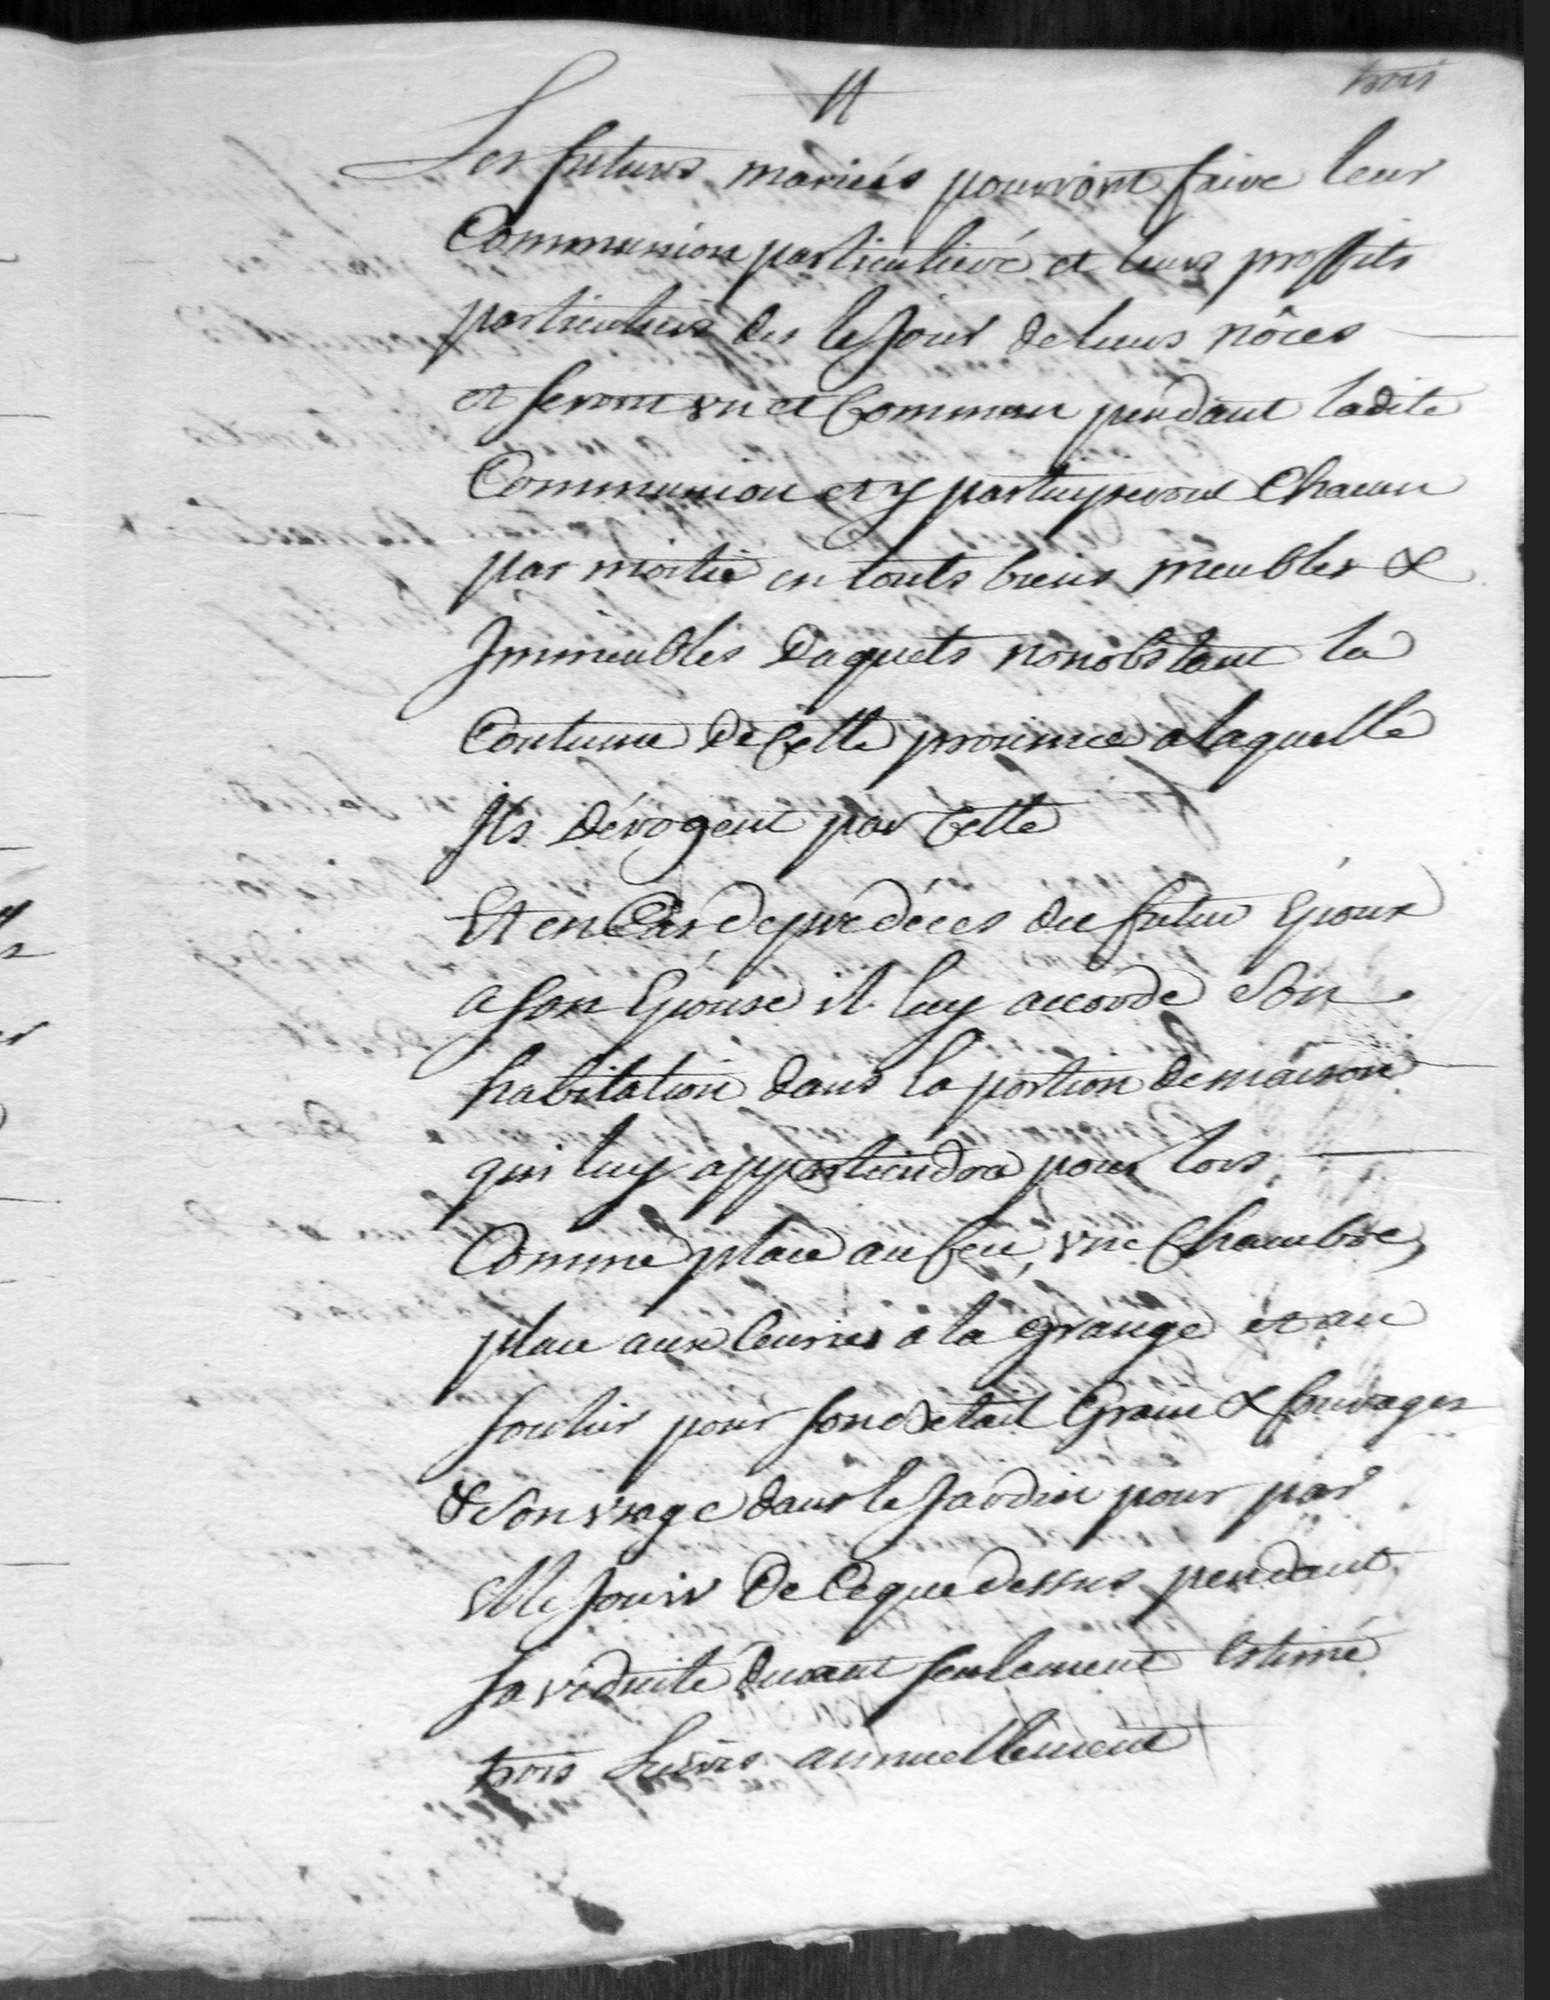 trois
Les futurs mariés pourront faire leur
Communion particulieré et leurs proffits
particuliers des le Jour de leurs nôces
et seront vn et Commun pendant ladite
Communion et y partuyseront Chacun
par moitié en touts biens meubles &
Jmmeubles Daquets nonobstant la
Coutume de Cette prouince a laquelle
Jls Dérogent par Cette
Et en Cas de prédéces du futur Epoux
a son Epouse il luy accorde son
habitation dans la portion de maison
qui luy appartiendra pour lors
Comme place au feu, vne Chambre,
place aux Ecuries a la grange et au
soulier pour son bétail Grain & fourages
& son vsage dans le Jardin pour par
Elle Jouir De Ce que dessus pendant
sa viduité durant seulement Estimé
trois Livres annuellement